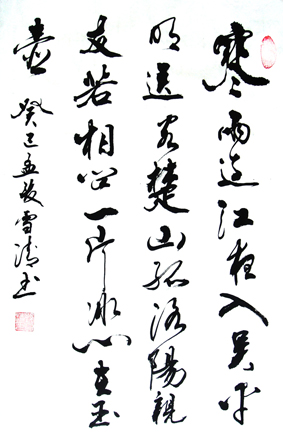 寒雨連江夜入吳平
明送客楚山孤洛陽親
友若相問一片冰心在玉
壺 癸巳孟秋雪清书